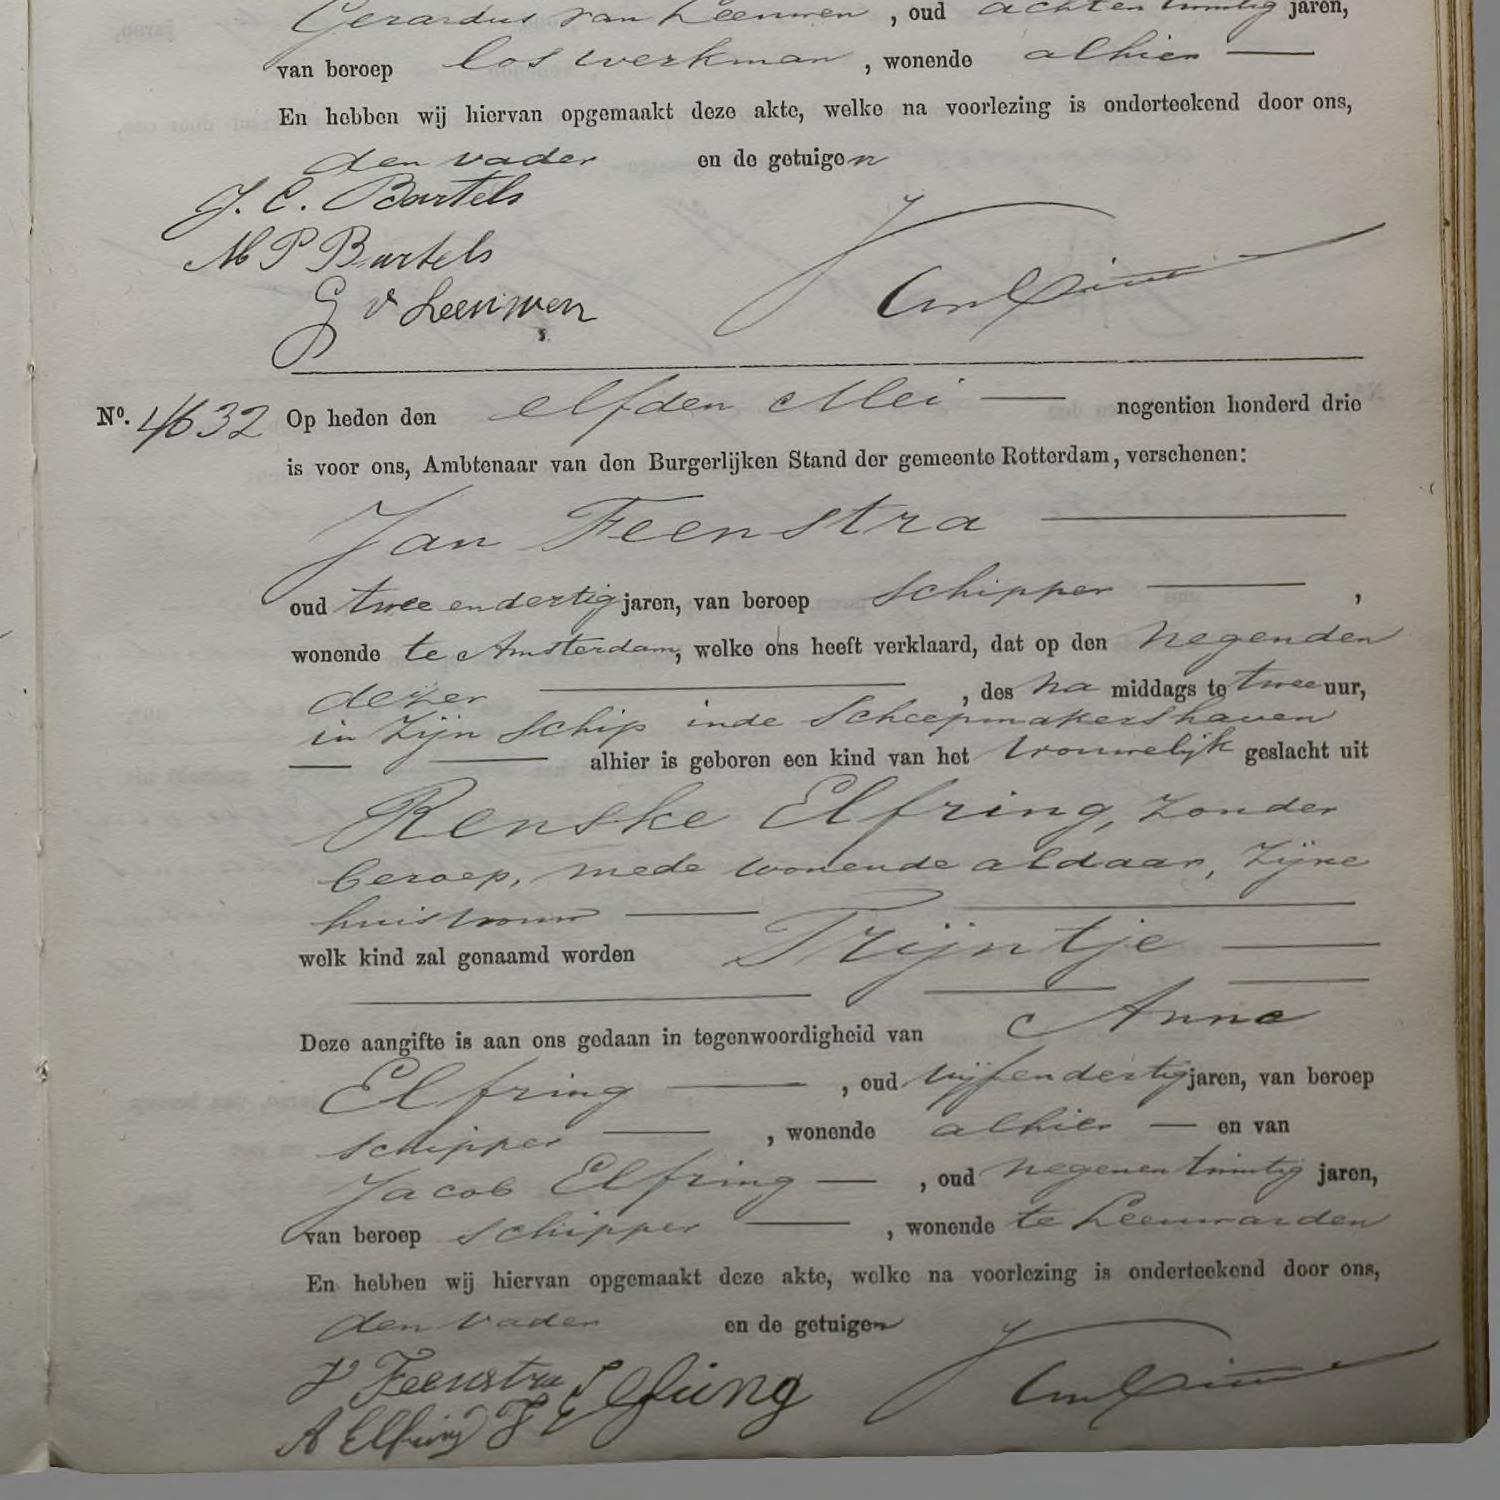 Gerardus van Leeuwen, oud achtentwintig jaren,
van beroep los werkman, wonende alhier
En hebben wij hiervan opgemaakt deze akte, welke na voorlezing is onderteekend door ons,
den vader en de getuigen
J. C. Bartels
M P Bartels
G v Leeuwen
No. 4632 Op heden den elfden Mei negentien honderd drie
is voor ons, Ambtenaar van den Burgerlijken Stand der gemeente Rotterdam, verschenen:
Jan Feenstra
oud twee en dertig jaren, van beroep schipper,
wonende te Amsterdam, welke ons heeft verklaard, dat op den negenden
dezer, des na middags te twee uur,
in zijn schip in de Scheepmakershaven
alhier is geboren een kind van het vrouwelijk geslacht uit
Renske Elfring, zonder
beroep, mede wonende aldaar, zijne
huisvrouw
welk kind zal genaamd worden Trijntje
Deze aangifte is aan ons gedaan in tegenwoordigheid van Anne
Elfring, oud vijfendertig jaren, van beroep
schipper, wonende alhier en van
Jacob Elfring, oud negenentwintig jaren,
van beroep schipper, wonende te Leeuwarden
En hebben wij hiervan opgemaakt deze akte, welke na voorlezing is onderteekend door ons,
den vader en de getuigen
J Feenstra
A Elfring J Elfring